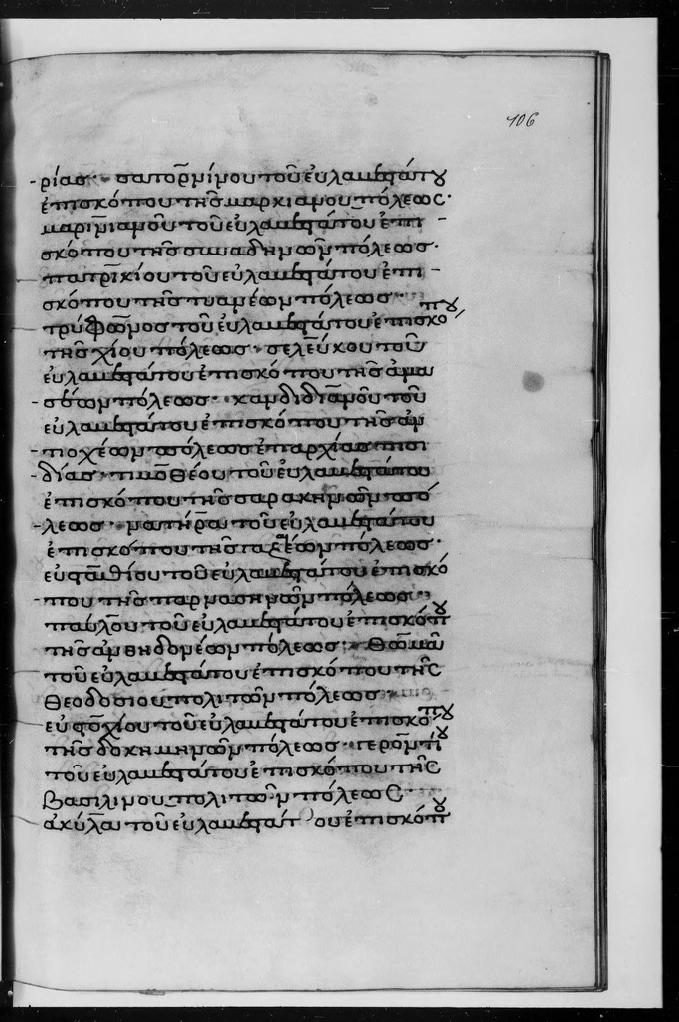 106
-ρίας· σατορνίνου τοῦ εὐλαβεστάτου
ἐπισκόπου τῆς μαρκιανουπόλεως·
μαρινιανοῦ τοῦ εὐλαβεστάτου ἐπι-
σκόπου τῆς συναδηνῶν πόλεως·
πατρικίου τοῦ εὐλαβεστάτου ἐπι-
σκόπου τῆς τυανέων πόλεως·
τρύφωνος τοῦ εὐλαβεστάτου ἐπισκόπου
τῆς χίου πόλεως· σελεύκου τοῦ
εὐλαβεστάτου ἐπισκόπου τῆς ἀμα
-σέων πόλεως· κανδιδιανοῦ τοῦ
εὐλαβεστάτου ἐπισκόπου τῆς ἀν
-τιοχέων πόλεως ἐπαρχίας πισι
-δίας· τιμοθέου τοῦ εὐλαβεστάτου
ἐπισκόπου τῆς σαρακηνῶν πό
-λεως· νατήρα τοῦ εὐλαβεστάτου
ἐπισκόπου τῆς γαξέων πόλεως·
εὐσταθίου τοῦ εὐλαβεστάτου ἐπισκό
-που τῆς παρνασηνῶν πόλεως·
παύλου τοῦ εὐλαβεστάτου ἐπισκόπου
τῆς ἀνθηδονέων πόλεως· θωμᾶ
τοῦ εὐλαβεστάτου ἐπισκόπου τῆς
θεοδοσιουπολιτῶν πόλεως·
εὐστοχίου τοῦ εὐλαβεστάτου ἐπισκόπου
τῆς δοκημηνῶν πόλεως· γεροντίου
τοῦ εὐλαβεστάτου ἐπισκόπου τῆς
βασιλινουπολιτῶν πόλεως·
ἀκύλα τοῦ εὐλαβεστάτου ἐπισκόπου